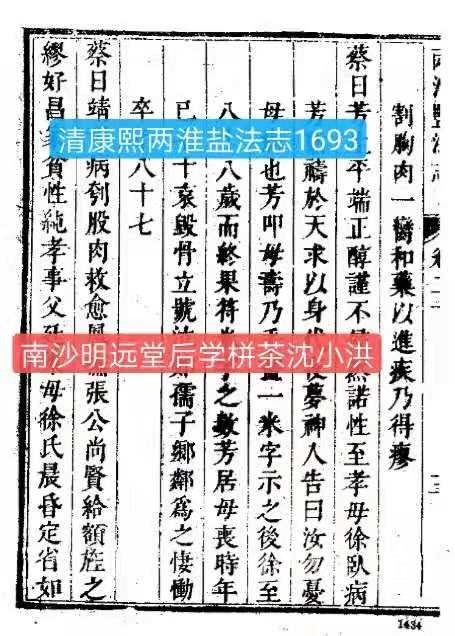 兩淮鹽法志
卷二
割胸肉一臠和藥以進疾乃得瘳
蔡日芳平端正醇謹不然諾性至孝母徐臥病
芳禱於天求以身夜夢神人告曰汝勿憂
母也芳叩母壽乃畫一米字示之後徐至
八八歲而終果符之數芳居母喪時年
已十哀毀骨立號孺子鄉鄰為之悽慟
卒八十七
蔡日靖病刳股肉救愈張公尚賢給額旌之
繆好昌貧性純孝事父母徐氏晨昏定省如
清康熙两淮盐法志1693
南沙明远堂后学栟茶沈小洪
1434